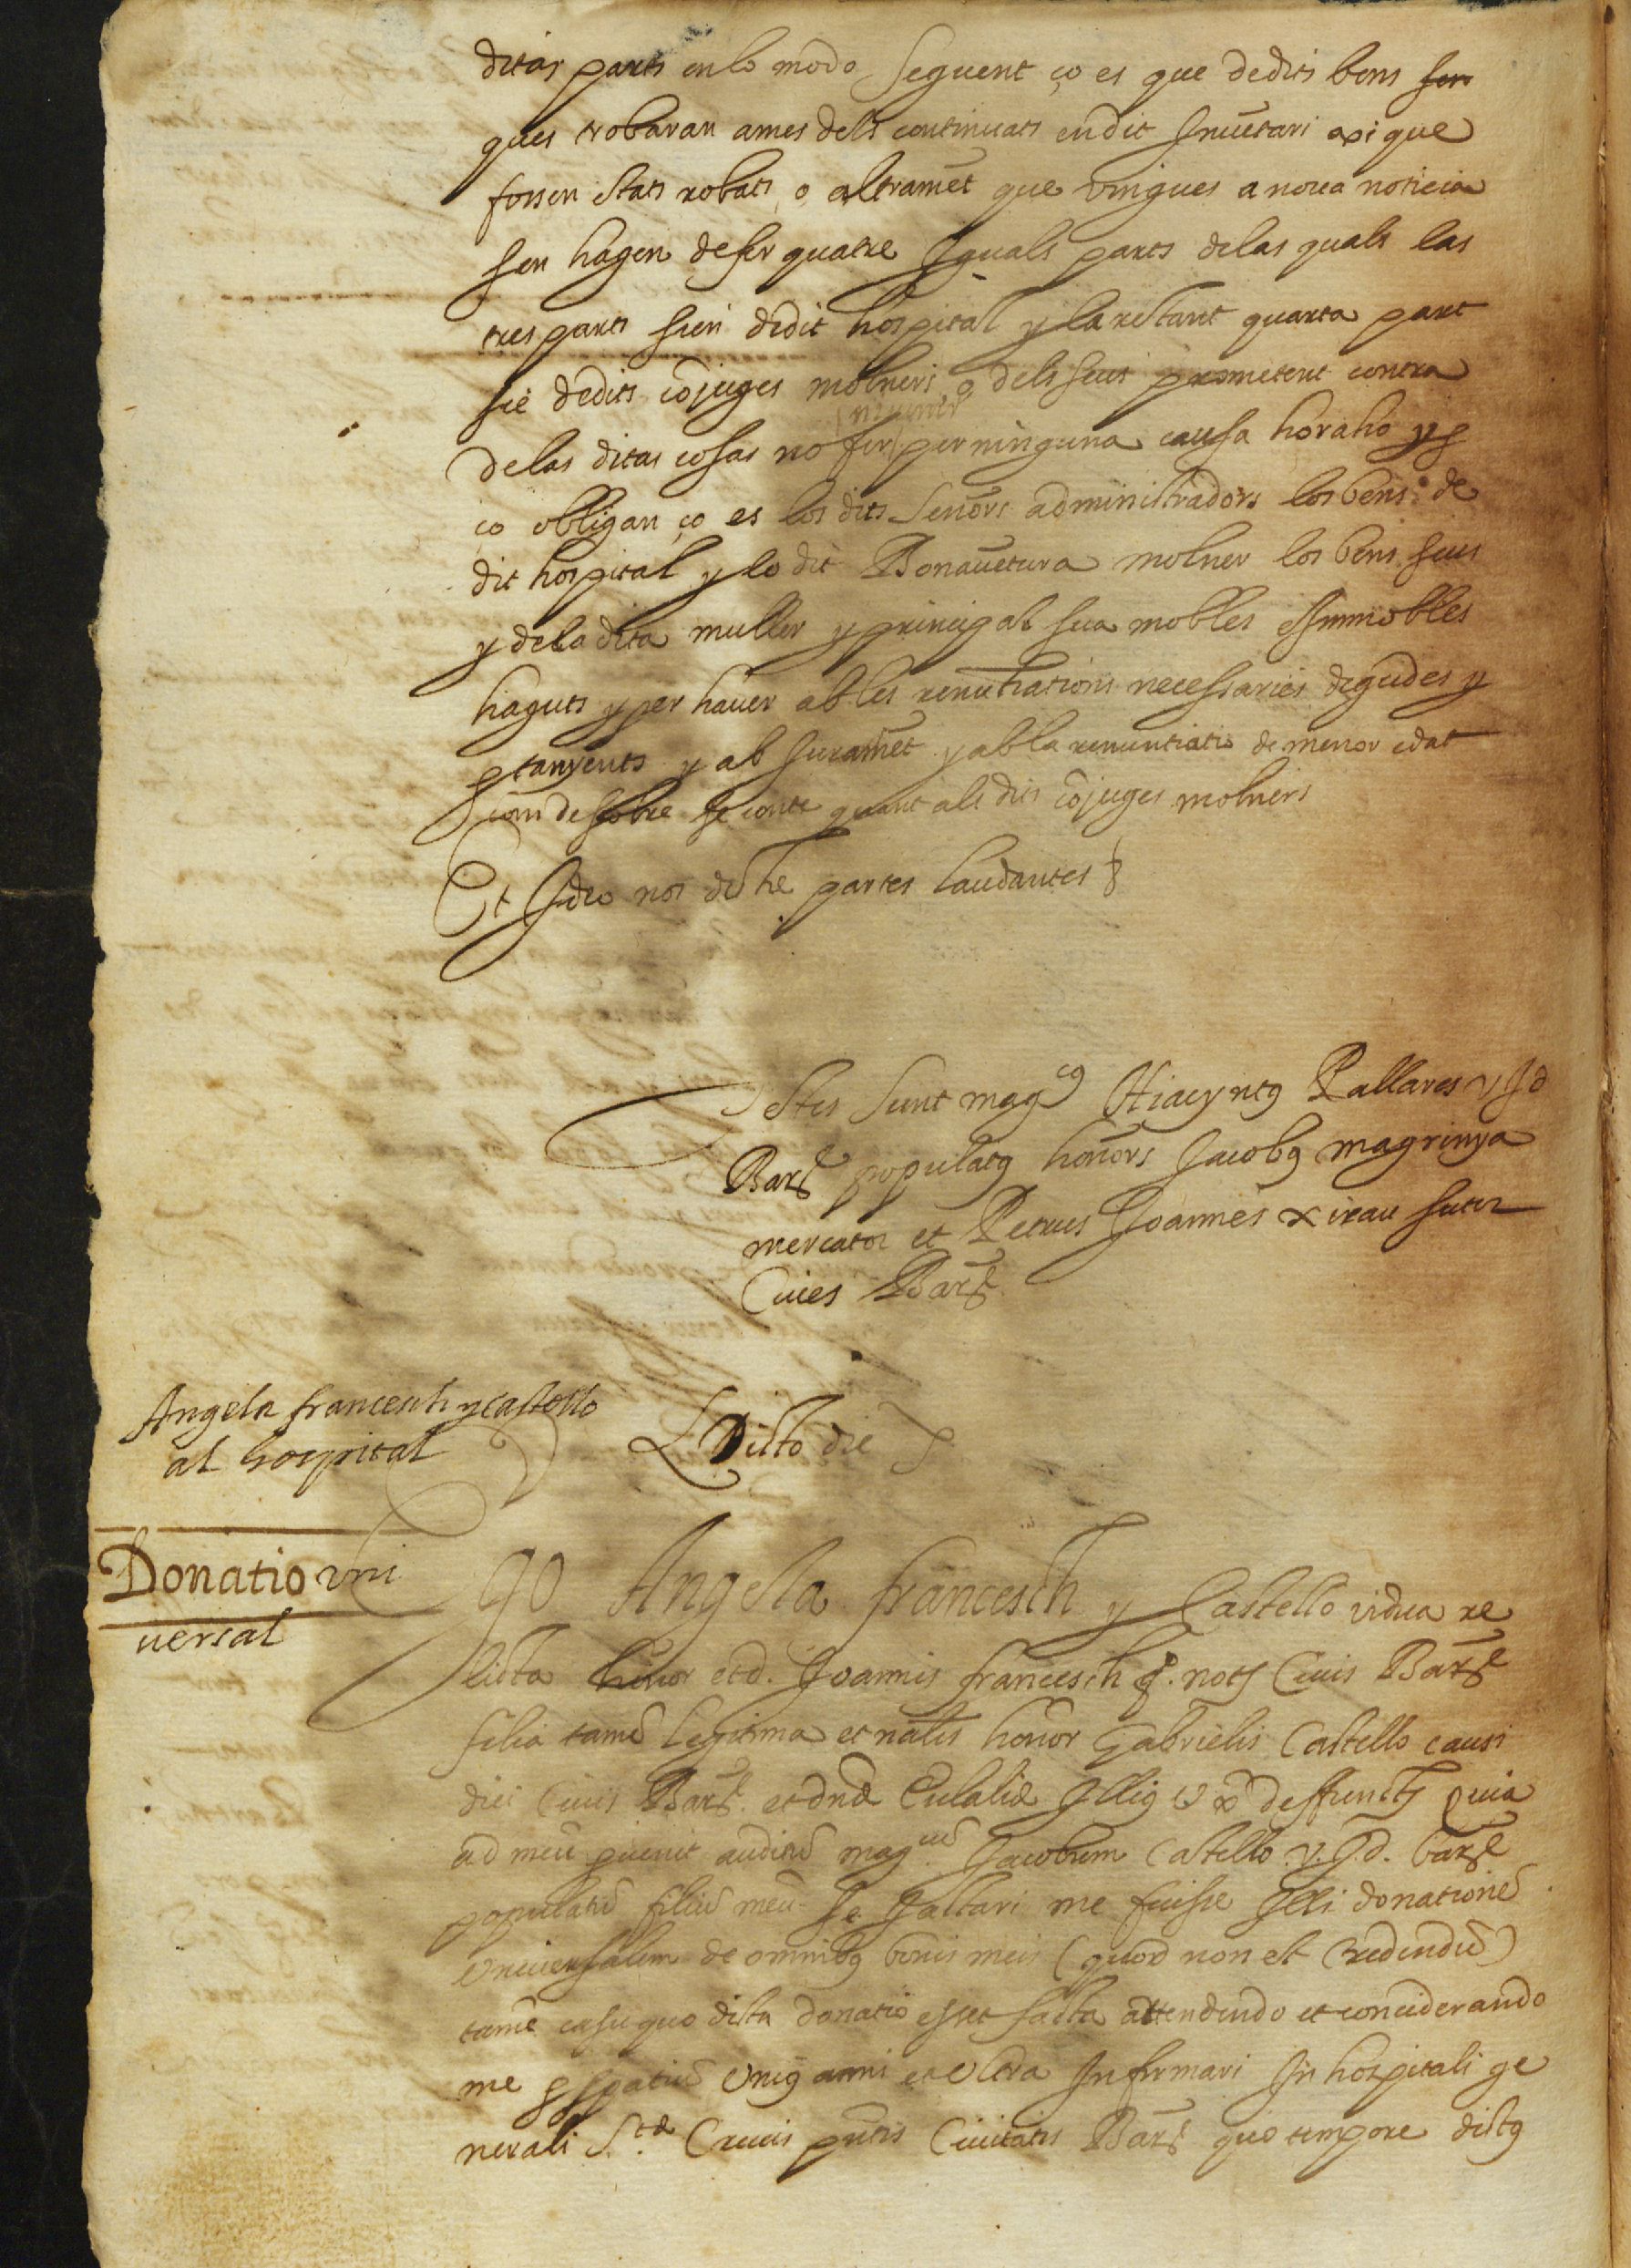 ditas parts en lo modo seguent ço es que dedits bens sen
ques trobaran ames dels continuats endit Inuētari axi que
fossen stats robats o altramēt que vingues a noua noticia
sen hagen defer quatre Iguals parts delas quals las
tres parts sien dedit hospital y la restant quarta part
sie dedits cōjuges molners o dels seus prometent contra
delas ditas cosas no fer per ninguna causa ho raho y p
ço obligan ço es los dits Senõrs administradors los bens de
dit hospital y lo dit Bonauētura molner los bens seus
y dela dita muller y principal sua mobles e Immobles
haguts y per hauer ab les renūtiations necessaries degudes y
ptanyents y ab Juramēt y ab la renuntiatio de menor edat
com desobre se conte quant als dits cōjuges molners
Et Ideo nos dicte partes laudantes &
Testes sunt magcs Hiacyntus Pallares v J d
Barꝰ populatus honors Jacobus magrinya
mercator et Petrus Joannes xirau sutor
Ciues Barꝰ
Angela francesch y castello
al hospital
Dicto die
Donatio vni
uersal
Ego Angela francesch y Castello vidua re
licta honor et d. Joannis francesch q. notj Ciuis Barꝰ
filia tamē legitima et nālis honor Gabrielis Castello causi
dici Ciuis Barꝰ et dnæ Eulaliæ Illius vx deffunctj Quia
ad meū puenit auditū magcū Jacobum Castello v. J. d. barꝰ
populatū filiū meū se Jactari me fuisse Illi donationē
vniuersalem de omnibus bonis meis (quod non est credendū)
tamē casu quo dicta donatio esset facta attendendo et conciderando
me p spatiū vnius anni et vltra Infirmari In hospitali ge
nerali S.tæ Crucis pn̄tis Ciuitatis Barꝰ quo tempore dictus